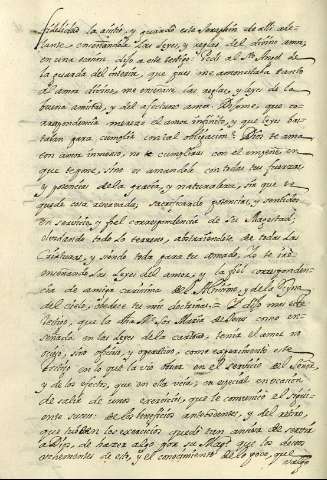 fidelidad la asistió, y guardó este Seraphin de alli ade-
lante enseñandola las leyes, y reglas del divino amor,
en una ocasion dijo a este testigo: Pedi al Sto Angel de
la guarda del interior, que pues me amonestaba tanto
al amor divino, me enseñara las reglas, y leyes de la
buena amistad, y del afectuoso amor. Dijome, que co-
rrespondencia merece el amor infinito, y que leyes bas-
taran para cumplir con tal obligacion? Dios te ama
con amor inmenso, no te cumpliras con el empeño en
que te pone, sino es amandole con todas tus fuerzas
y potencias de la gracia, y naturaleza, sin que te
quede cosa reservada, sacrificando potencias, y sentidos
en servicio, y fiel correspondencia de Su Magestad,
olvidando todo lo terreno, abstrayendote de todas las
Criaturas, y siendo toda para tu amado, Yo te iré
enseñando las leyes del amor, y la fiel corresponden-
cia de amiga carissima del Altissimo, y de la Reyna
del cielo, obedece tu mis doctrinas. Y dijo mas este
testigo, que la dha Me Sor Maria de Jesus como en-
señada en las leyes de la caridad, tenia el amor no
ocioso, sino oficioso, y operativo, como experimentó este
testigo en lo que la vio obrar en el servicio del Señor,
y de los efectos, que en ella veia, en especial en ocasion
de salir de unos exercicios, que le comunicó el sigui-
ente suceso: De los beneficios antecedentes, y del retiro,
que tube en los exercicios quedé con ansias de servir
a Dios, de hazer algo por su Magd que los deseos
vehementes de esto, y el conocimiento de lo poco, que
valgo